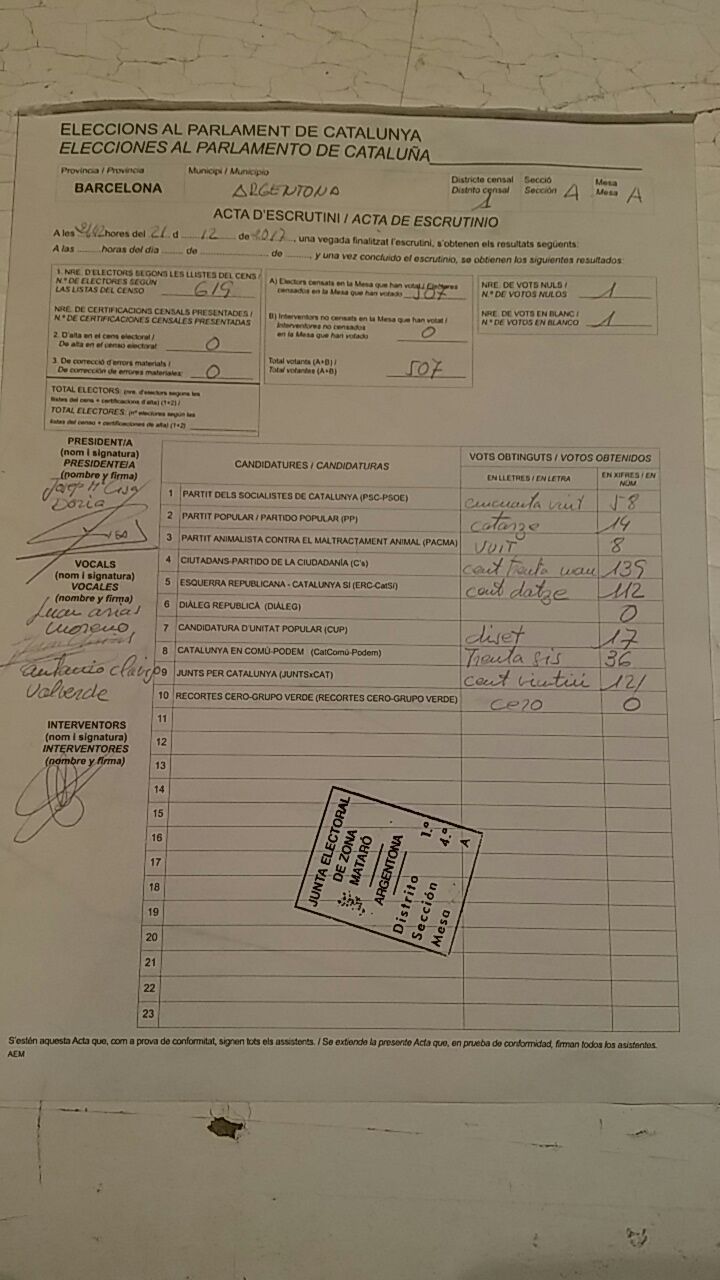 ELECCIONS AL PARLAMENT DE CATALUNYA
ELECCIONES AL PARLAMENTO DE CATALUÑA
Província / Provincia
BARCELONA
Municipi / Municipio
ARGENTONA
Districte censal
Distrito censal 1
Secció
Sección 4
Mesa
Mesa A
ACTA D'ESCRUTINI / ACTA DE ESCRUTINIO
A les hores del 21 d 12 de 2017, una vegada finalitzat l'escrutini, s'obtenen els resultats següents:
A las ........horas del día ........ de ................ de ........, y una vez concluido el escrutinio, se obtienen los siguientes resultados:
1. NRE. D'ELECTORS SEGONS LES LLISTES DEL CENS /
N.º DE ELECTORES SEGÚN
LAS LISTAS DEL CENSO 619
NRE. DE CERTIFICACIONS CENSALS PRESENTADES /
N.º DE CERTIFICACIONES CENSALES PRESENTADAS
2. D'alta en el cens electoral /
De alta en el censo electoral: 0
3. De correcció d'errors materials /
De corrección de errores materiales: 0
TOTAL ELECTORS: (nre. d'electors segons les
llistes del cens + certificacions d'alta) (1+2) /
TOTAL ELECTORES: (nº electores según las
listas del censo + certificaciones de alta) (1+2)
A) Electors censats en la Mesa que han votat / Electores
censados en la Mesa que han votado 507
B) Interventors no censats en la Mesa que han votat /
Interventores no censados
en la Mesa que han votado 0
Total votants (A+B) /
Total votantes (A+B) 507
NRE. DE VOTS NULS /
N.º DE VOTOS NULOS 1
NRE. DE VOTS EN BLANC /
N.º DE VOTOS EN BLANCO 1
PRESIDENT/A
(nom i signatura)
PRESIDENTE/A
(nombre y firma)
Josep Mª
Doria
VOCALS
(nom i signatura)
VOCALES
(nombre y firma)
Juan arias
moreno
antonio clavijo
valverde
INTERVENTORS
(nom i signatura)
INTERVENTORES
(nombre y firma)
CANDIDATURES / CANDIDATURAS
VOTS OBTINGUTS / VOTOS OBTENIDOS
EN LLETRES / EN LETRA
EN XIFRES / EN NÚM.
1 PARTIT DELS SOCIALISTES DE CATALUNYA (PSC-PSOE) cincuanta vuit 58
2 PARTIT POPULAR / PARTIDO POPULAR (PP) catorze 14
3 PARTIT ANIMALISTA CONTRA EL MALTRACTAMENT ANIMAL (PACMA) VUIT 8
4 CIUTADANS-PARTIDO DE LA CIUDADANÍA (C's) cent trenta nou 139
5 ESQUERRA REPUBLICANA - CATALUNYA SÍ (ERC-CatSí) cent dotze 112
6 DIÀLEG REPUBLICÀ (DIÀLEG) 0
7 CANDIDATURA D'UNITAT POPULAR (CUP) diset 17
8 CATALUNYA EN COMÚ-PODEM (CatComú-Podem) Trenta sis 36
9 JUNTS PER CATALUNYA (JUNTSxCAT) cent vintiu 121
10 RECORTES CERO-GRUPO VERDE (RECORTES CERO-GRUPO VERDE) cero 0
11
12
13
14
15
16
17
18
19
20
21
22
23
JUNTA ELECTORAL
DE ZONA
MATARÓ
ARGENTONA
Distrito 1.º
Sección 4.ª
Mesa A
S'estén aquesta Acta que, com a prova de conformitat, signen tots els assistents. / Se extiende la presente Acta que, en prueba de conformidad, firman todos los asistentes.
AEM